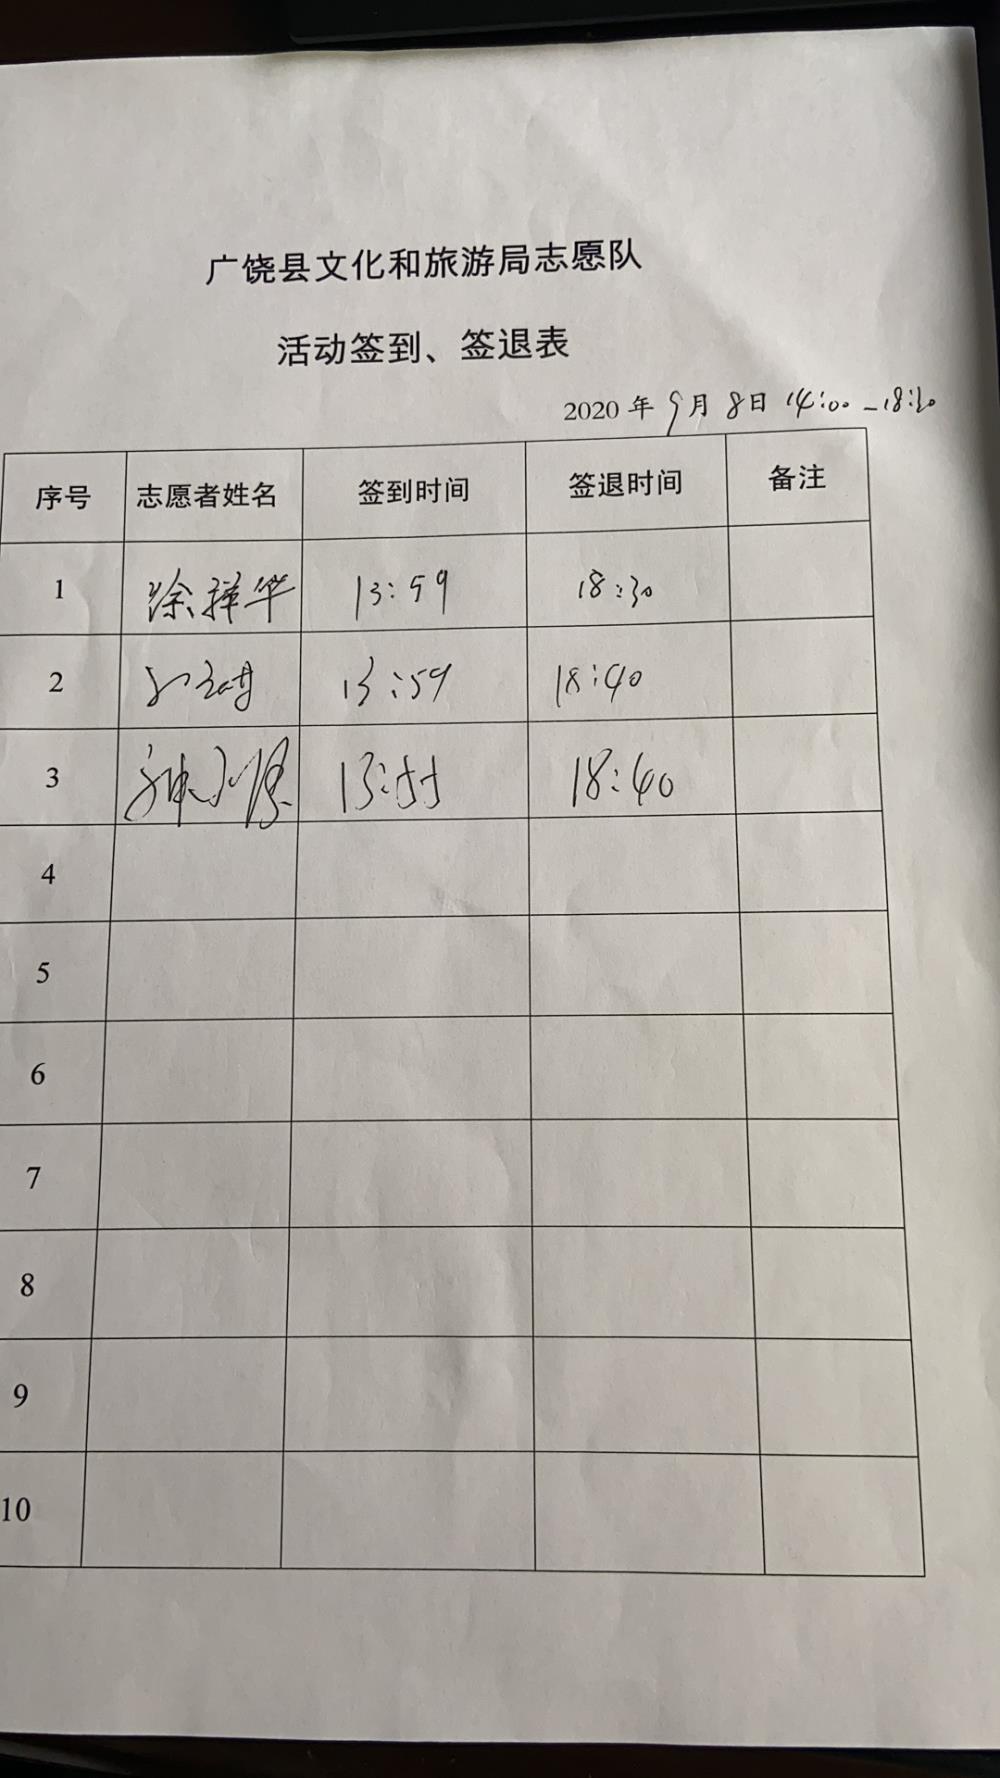 广饶县文化和旅游局志愿队
活动签到、签退表
2020 年 9月 8日 14:00-18:30
序号 志愿者姓名 签到时间 签退时间 备注
1 徐祥华 13:59 18:30
2 13:59 18:40
3 13:55 18:40
4
5
6
7
8
9
10